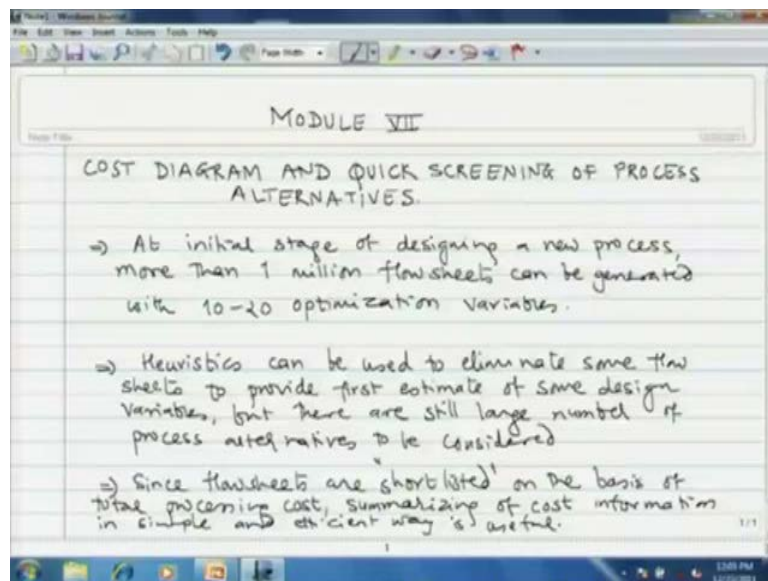 Note1 - Windows Journal
File Edit View Insert Actions Tools Help
Page Width
MODULE VII
Note Title
COST DIAGRAM AND QUICK SCREENING OF PROCESS
ALTERNATIVES.
=) At initial stage of designing a new process,
more than 1 million flowsheets can be generated
with 10-20 optimization variables.
=) Heuristics can be used to eliminate some flow
sheets to provide first estimate of some design
variables, but there are still large number of
process alternatives to be considered
=) Since flowsheets are 'shortlisted' on the basis of
total processing cost, summarizing of cost information
in simple and efficient way is useful.
1/1
1
12:05 PM